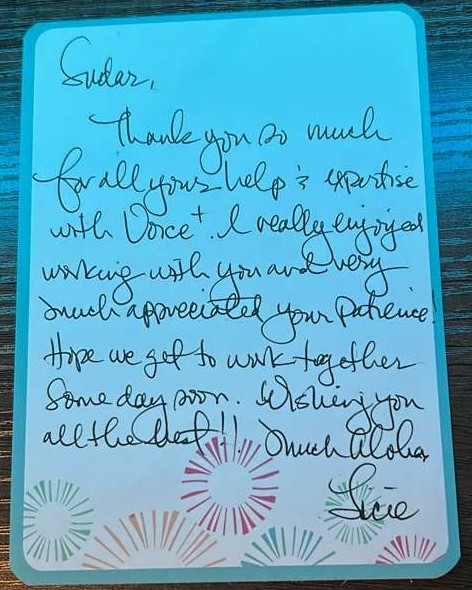 Sudar,
Thank you so much
for all your help & expertise
with Voice+. I really enjoyed
working with you and very
much appreciated your patience!
Hope we get to work together
someday soon. Wishing you
all the best!! Much Aloha,
Licie